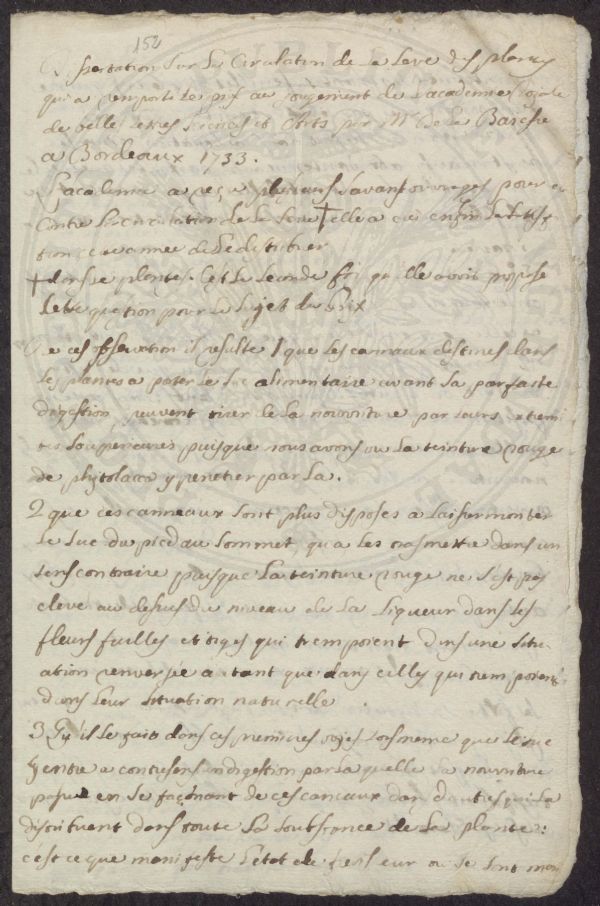 152
Dissertation sur la Circulation de la Seve des plantes
qui a remporté le prix au jugement de l'academie royale
de belles lettres Sciences et Arts par Mr de la Baisse
a Bordeaux 1733.
L'academie a reçu plusieurs savants ouvrages pour et
contre la circulation de la Seve † elle a eu enfin la satisfa
ction cette année de le distribuer
† dans les plantes. C'est la seconde fois qu'elle avoit proposé
cette question pour le sujet du prix
De ces observation il resulte 1 que les cannaux destines dans
les plantes a porter le suc alimentaire avant sa parfaite
digestion, peuvent tirer de la nourriture par leurs extremi
tes superieures puisque nous avons vu la teinture rouge
de phytolacca y penetrer par la.
2 que ces canneaux sont plus disposes a laisser monter
le suc du pied au sommet, qu'a les trasmettre dans un
sens contraire puisque la teinture rouge ne s'est pas
eleve au dessus du niveau de la liqueur dans les
fleurs fuilles et tiges qui trempoient dans une situ-
ation renversee autant que dans celles qui trempoient
dans leur situation naturelle
3 Qu'il se fait dans ces premieres tiges lors meme que le suc
y entre a contresens une digestion par laquelle la nourriture
passe en se façonant de ces canaux dans d'autres qui la
distribuent dans toute la substance de la plante:
c'est ce que manifeste l'etat de ou se sont